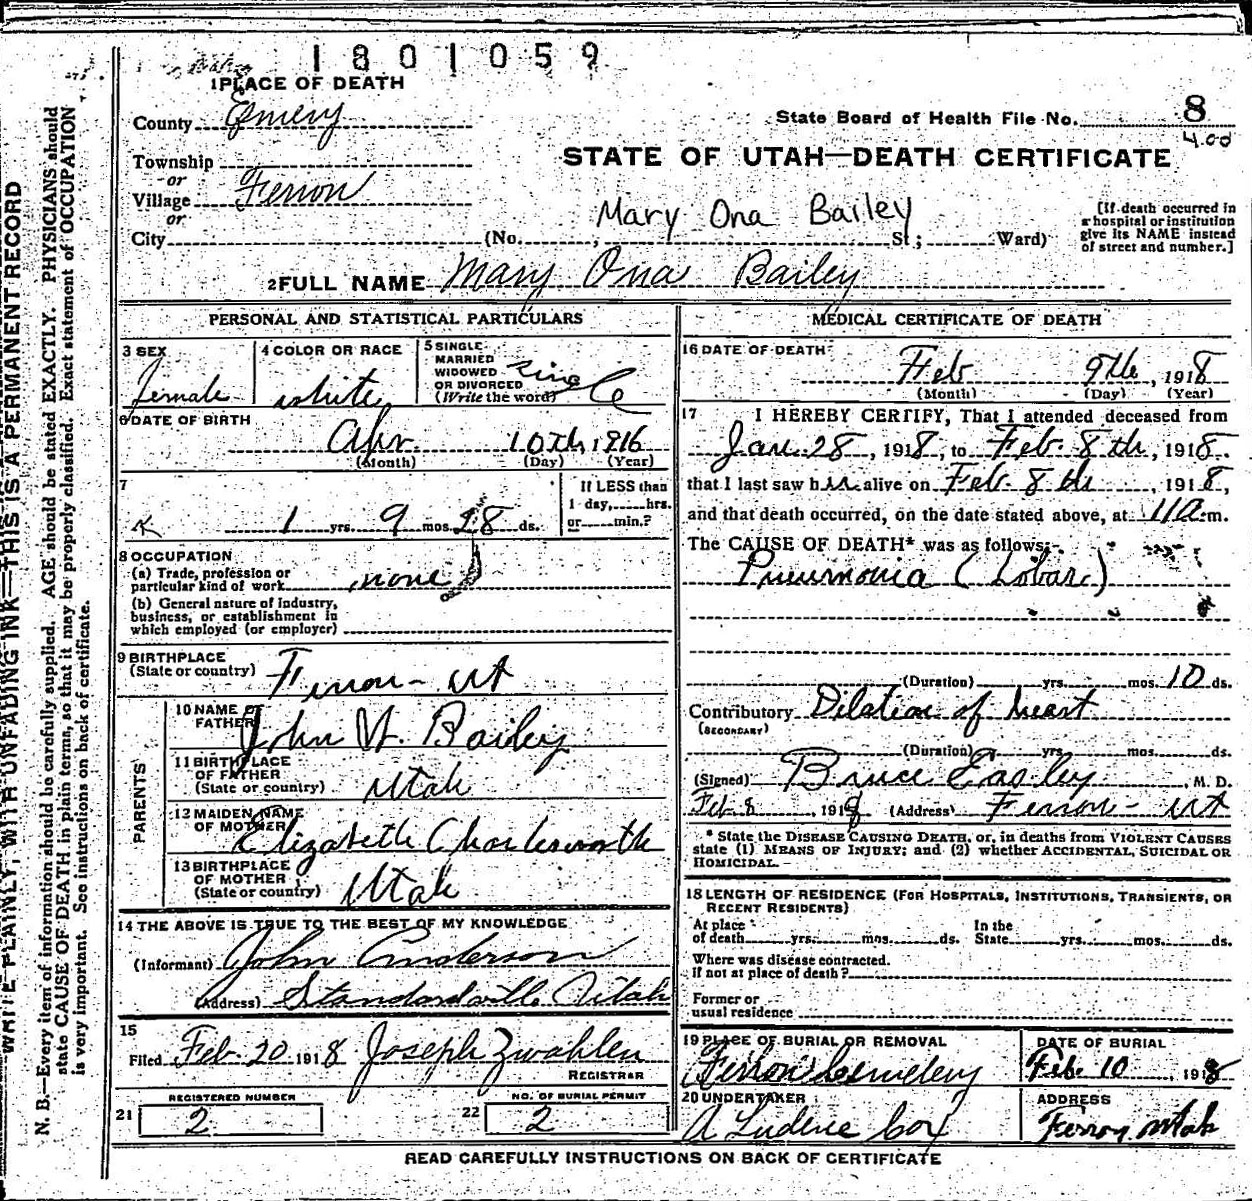 1801059
1 PLACE OF DEATH
County Emery
State Board of Health File No. 8
4.00
Township
or
Village Ferron
or
STATE OF UTAH—DEATH CERTIFICATE
Mary Ona Bailey
City (No. , St.; Ward)
[If death occurred in
a hospital or institution
give its NAME instead
of street and number.]
2 FULL NAME Mary Ona Bailey
PERSONAL AND STATISTICAL PARTICULARS
3 SEX
Female
4 COLOR OR RACE
white
5 SINGLE
MARRIED
WIDOWED
OR DIVORCED
(Write the word)
single
6 DATE OF BIRTH
Apr. 10th, 1816
(Month) (Day) (Year)
7
1 yrs. 9 mos. 28 ds.
If LESS than
1 day, hrs.
or min.?
8 OCCUPATION
(a) Trade, profession or
particular kind of work none
(b) General nature of industry,
business, or establishment in
which employed (or employer)
9 BIRTHPLACE
(State or country) Ferron - Ut
PARENTS
10 NAME OF
FATHER John W. Bailey
11 BIRTHPLACE
OF FATHER
(State or country) Utah
12 MAIDEN NAME
OF MOTHER Elizabeth Charlesworth
13 BIRTHPLACE
OF MOTHER
(State or country) Utah
14 THE ABOVE IS TRUE TO THE BEST OF MY KNOWLEDGE
(Informant) John Anderson
(Address) Standardville Utah
15
Filed Feb. 20 1918 Joseph Zwahlen
REGISTRAR
21 REGISTERED NUMBER
2
22 NO. OF BURIAL PERMIT
2
MEDICAL CERTIFICATE OF DEATH
16 DATE OF DEATH
Feb 9th, 1918
(Month) (Day) (Year)
17 I HEREBY CERTIFY, That I attended deceased from
Jan. 28, 1918, to Feb. 8th, 1918
that I last saw h alive on Feb. 8th, 1918,
and that death occurred, on the date stated above, at 11 a.m.
The CAUSE OF DEATH* was as follows:
Pneumonia (Lobar.)
(Duration) yrs. mos. 10 ds.
Contributory Dilation of heart
(SECONDARY)
(Duration) yrs. mos. ds.
(Signed) Bruce Easley, M. D.
Feb 8 1918 (Address) Ferron - Ut
* State the DISEASE CAUSING DEATH, or, in deaths from VIOLENT CAUSES
state (1) MEANS OF INJURY; and (2) whether ACCIDENTAL, SUICIDAL OR
HOMICIDAL.
18 LENGTH OF RESIDENCE (FOR HOSPITALS, INSTITUTIONS, TRANSIENTS, OR
RECENT RESIDENTS)
At place
of death yrs. mos. ds.
In the
State yrs. mos. ds.
Where was disease contracted.
if not at place of death?
Former or
usual residence
19 PLACE OF BURIAL OR REMOVAL
Ferron Cemetery
DATE OF BURIAL
Feb. 10, 1918
20 UNDERTAKER
A Ludene Cox
ADDRESS
Ferron Utah
READ CAREFULLY INSTRUCTIONS ON BACK OF CERTIFICATE
WRITE PLAINLY, WITH UNFADING INK—THIS IS A PERMANENT RECORD
N. B.—Every item of information should be carefully supplied. AGE should be stated EXACTLY. PHYSICIANS should
state CAUSE OF DEATH in plain terms, so that it may be properly classified. Exact statement of OCCUPATION
is very important. See instructions on back of certificate.